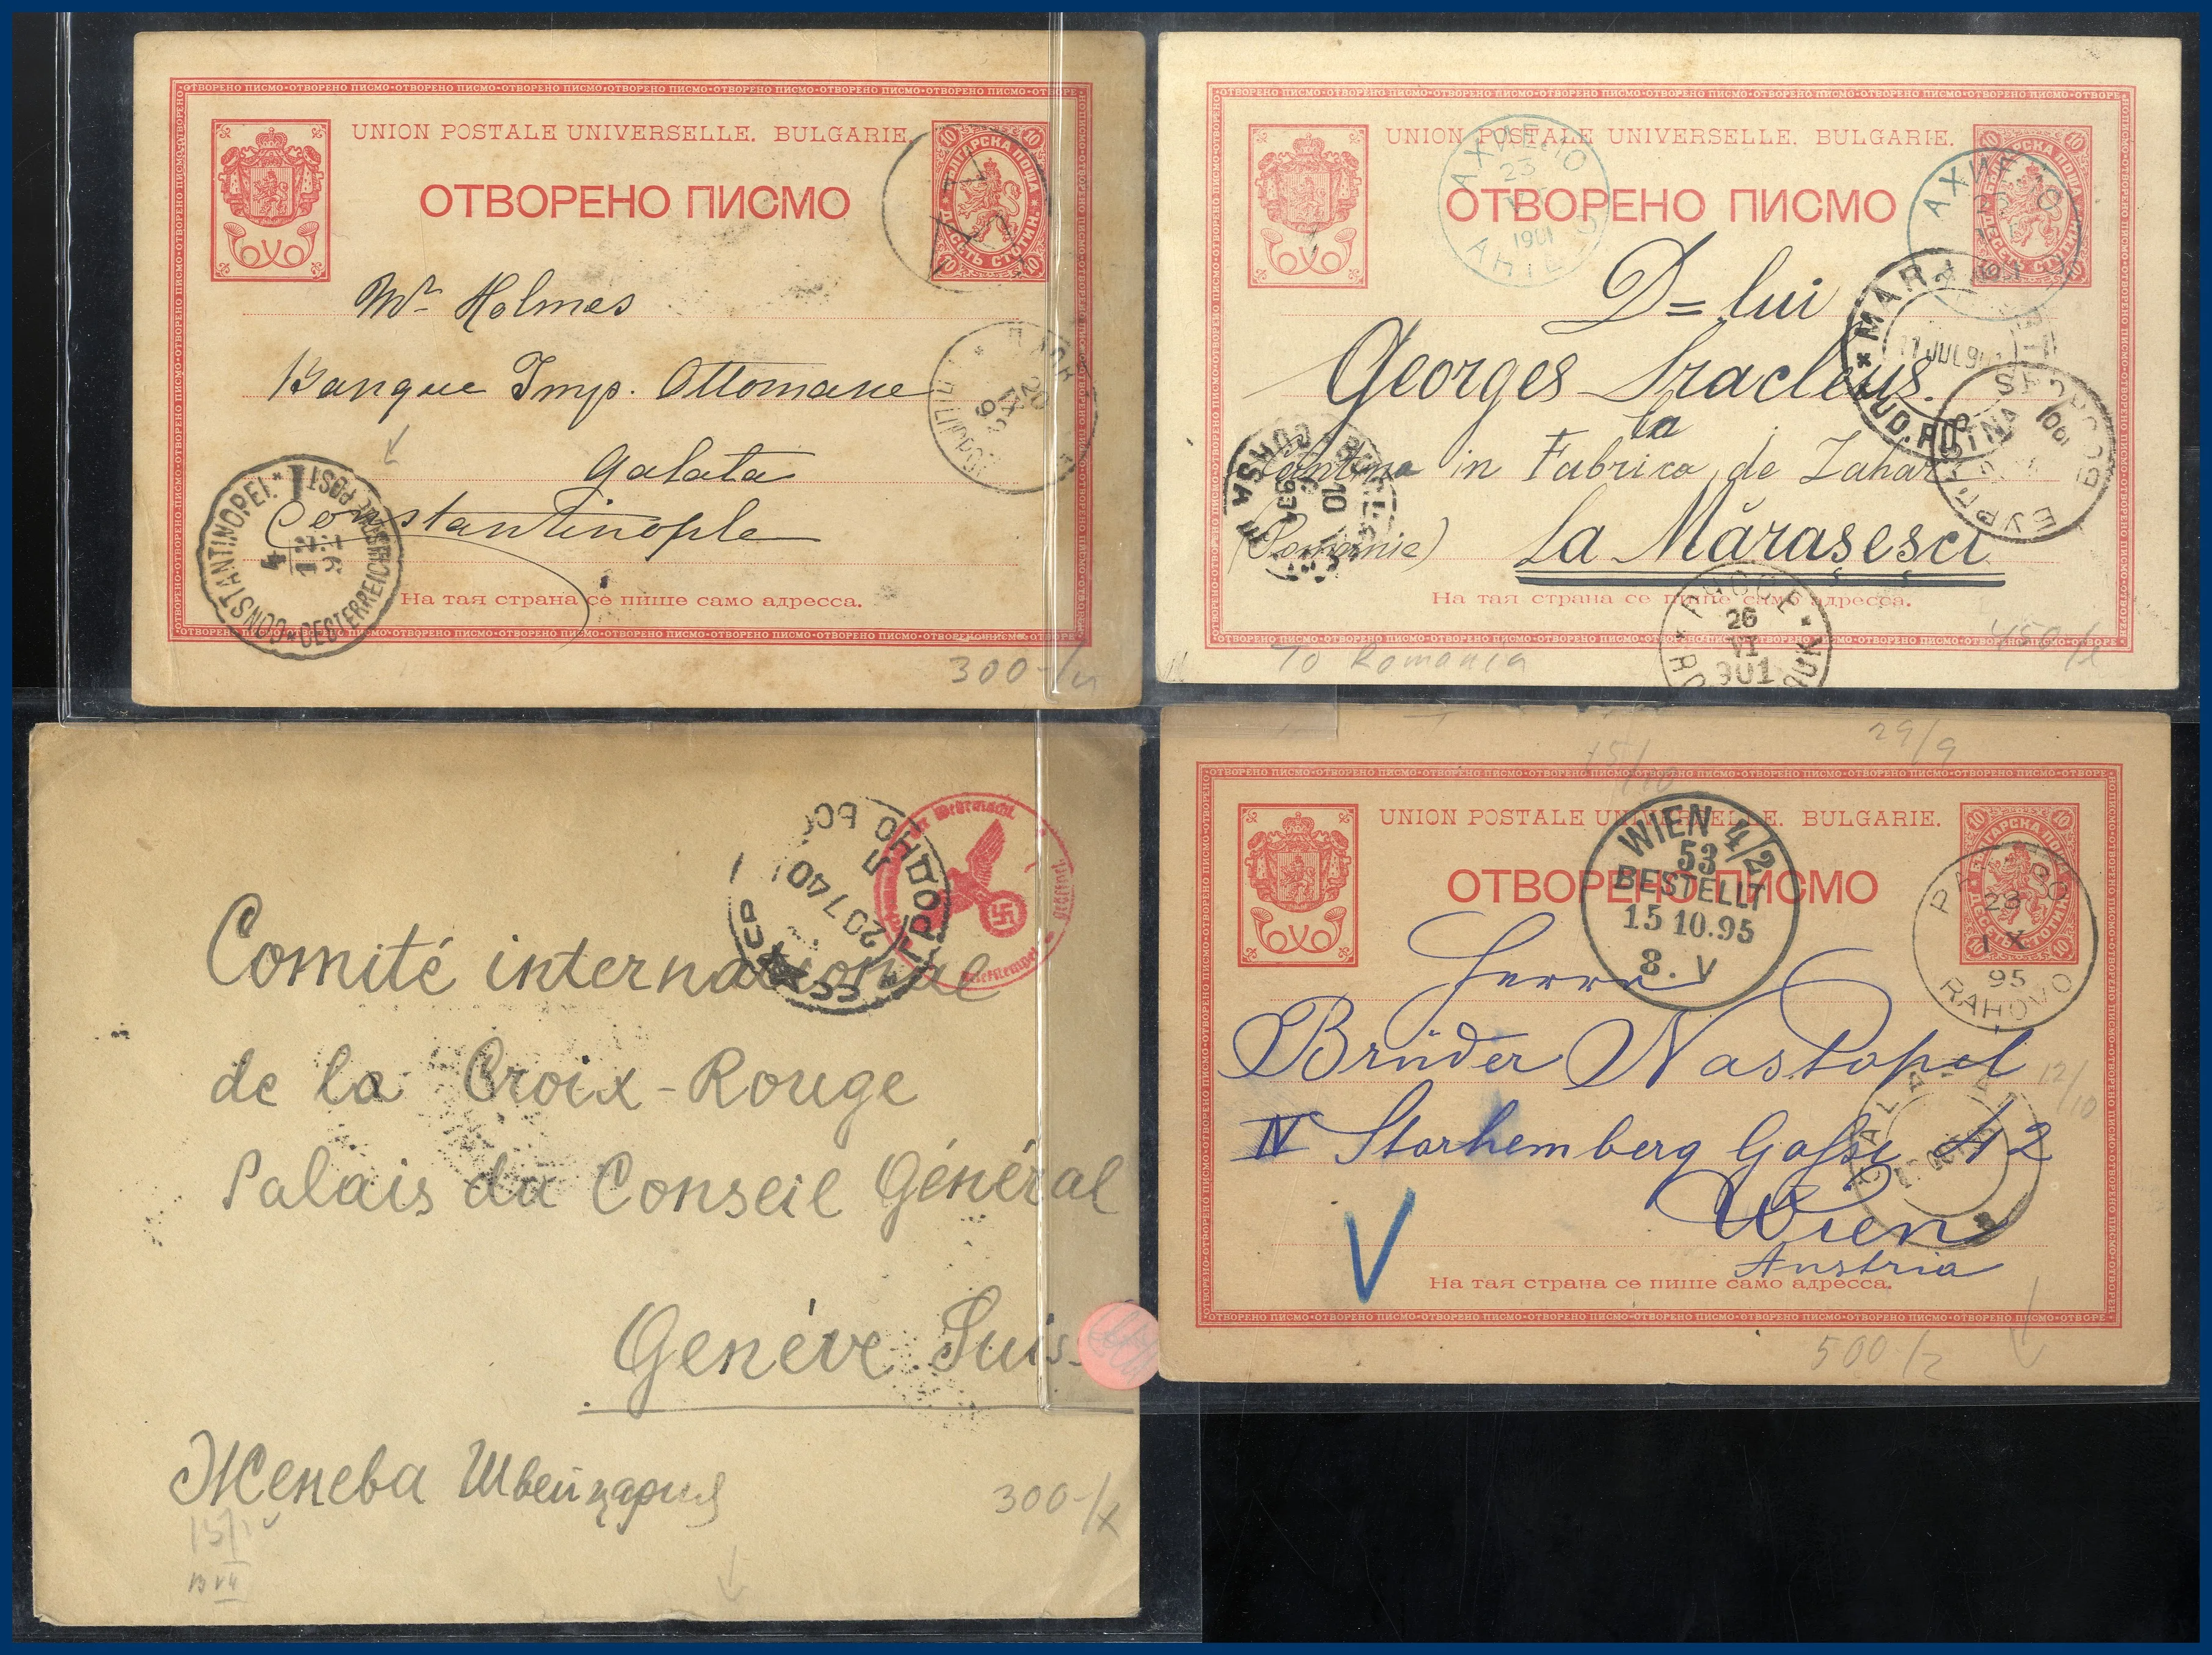 UNION POSTALE UNIVERSELLE. BULGARIE.
ОТВОРЕНО ПИСМО
Mr Holmes
Banque Imp. Ottomane
Galata
Constantinople
CONSTANTINOPEL
OESTERREICHISCHE POST
На тая страна се пише само адресса.
300-/
UNION POSTALE UNIVERSELLE. BULGARIE.
ОТВОРЕНО ПИСМО
АХИЕЛО
23
1901
D=lui
Georges
la
in Fabrica de Zahar
(Romanie)
La Mărașesci
11 JUL 901
На тая страна се пише само адресса.
26
VI
901
To Romania
Comité international
de la Croix-Rouge
Palais du Conseil Général
Genève Suis
Женева Швейцария
300-/x
20 7 40
29/9
15/10
UNION POSTALE UNIVERSELLE. BULGARIE.
ОТВОРЕНО ПИСМО
WIEN 4/2
53
BESTELLT
15 10.95
8. V
РАХОВО
23
IX
95
RAHOVO
Herrn
Brüder Nastopil
IV Starhemberg Gasse № 2
Wien
Austria
12/10
V
На тая страна се пише само адресса.
500/